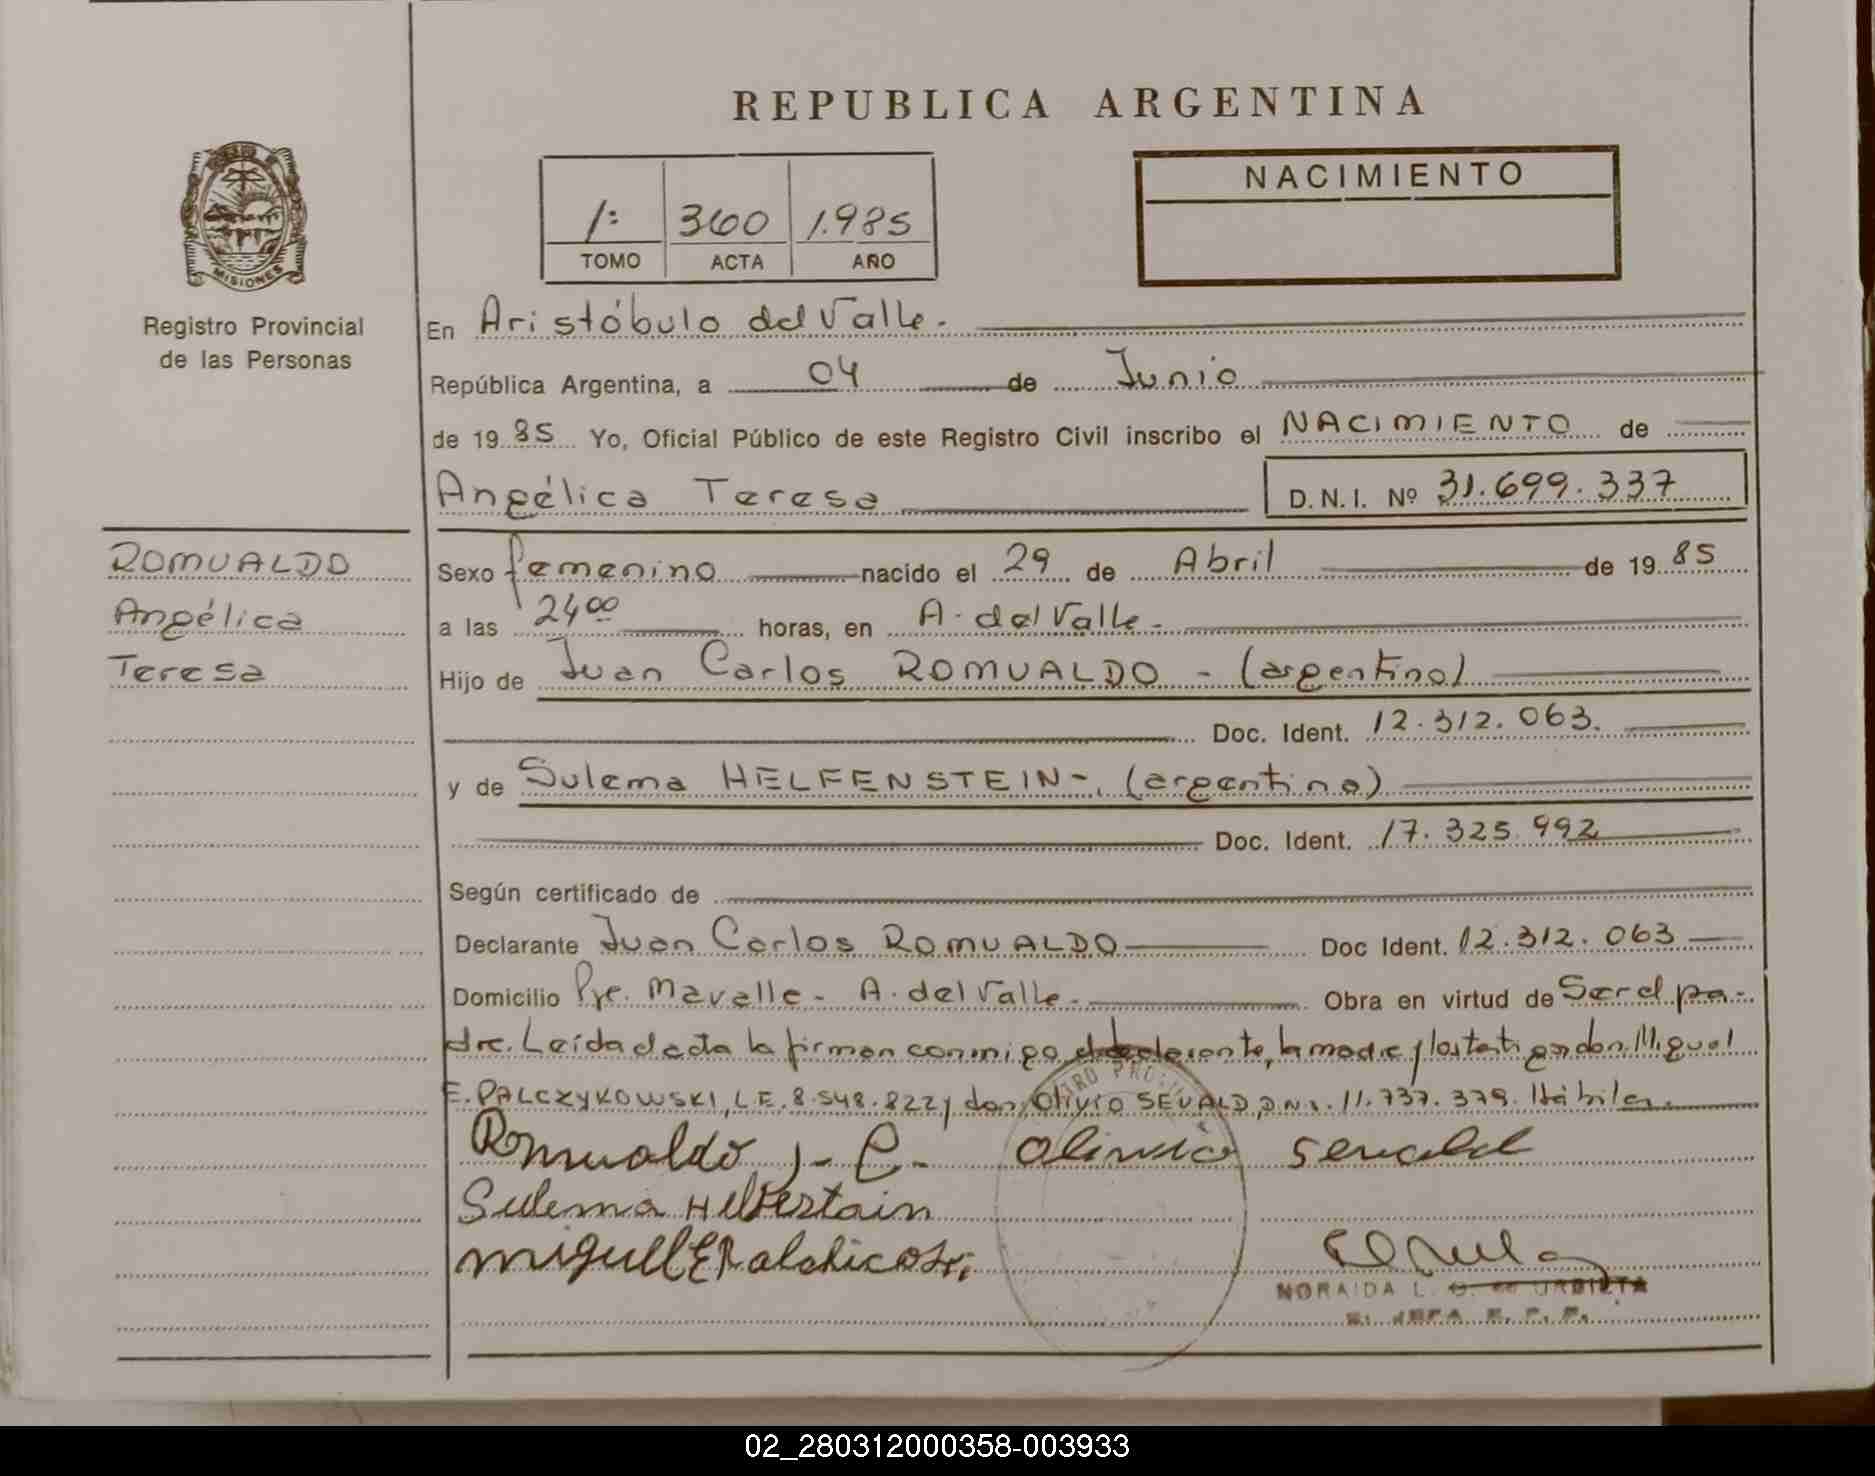 REPUBLICA ARGENTINA
MISIONES
Registro Provincial
de las Personas
1: 360 1.985
TOMO ACTA AÑO
NACIMIENTO
En Aristóbulo del Valle.
República Argentina, a 04 de Junio
de 1985 Yo, Oficial Público de este Registro Civil inscribo el NACIMIENTO de
Angélica Teresa D.N.I. Nº 31.699.337
ROMUALDO
Angélica
Teresa
Sexo femenino nacido el 29 de Abril de 1985
a las 24⁰⁰ horas, en A. del Valle.
Hijo de Juan Carlos ROMUALDO - (argentino)
Doc. Ident. 12.312.063.
y de Sulema HELFENSTEIN-, (argentina)
Doc. Ident. 17.325.992
Según certificado de
Declarante Juan Carlos ROMUALDO Doc Ident. 12.312.063
Domicilio Pje. Mavalle - A. del Valle. Obra en virtud de Ser el pa-
dre. Leída el acta la firman conmigo, la madre y los testigos don Miguel
E. PALCZYKOWSKI, L.E. 8.548.822 y don Olivio SEVALD, D.N.I. 11.737.379. Hábiles.
Romualdo J-C- olinvio sevald
Sulema Helfestain
NORAIDA L. G. de URBIETA
02_280312000358-003933